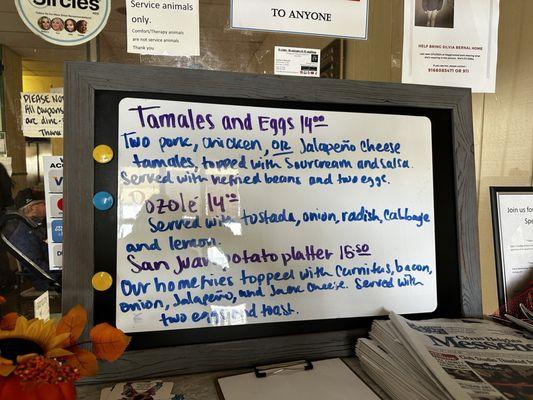 Circles
Service animals
only.
Comfort/Therapy animals
are not service animals
Thank you
TO ANYONE
HELP BRING SYLVIA BERNAL HOME
9166080475 OR 911
PLEASE Note
All Coupons
are dine-
Thank
Tamales and Eggs 14.00
Two pork, chicken, or Jalapeño Cheese
tamales, topped with Sourcream and salsa.
Served with refried beans and two eggs.
ozole 14.00
Served with tostada, onion, radish, cabbage
and lemon.
San Juan potato platter 15.50
Our homefries toppeel with Carnitas, bacon,
onion, Jalapeño, and Jack cheese. Served with
two eggs and toast.
Join us for
Spe
Messe